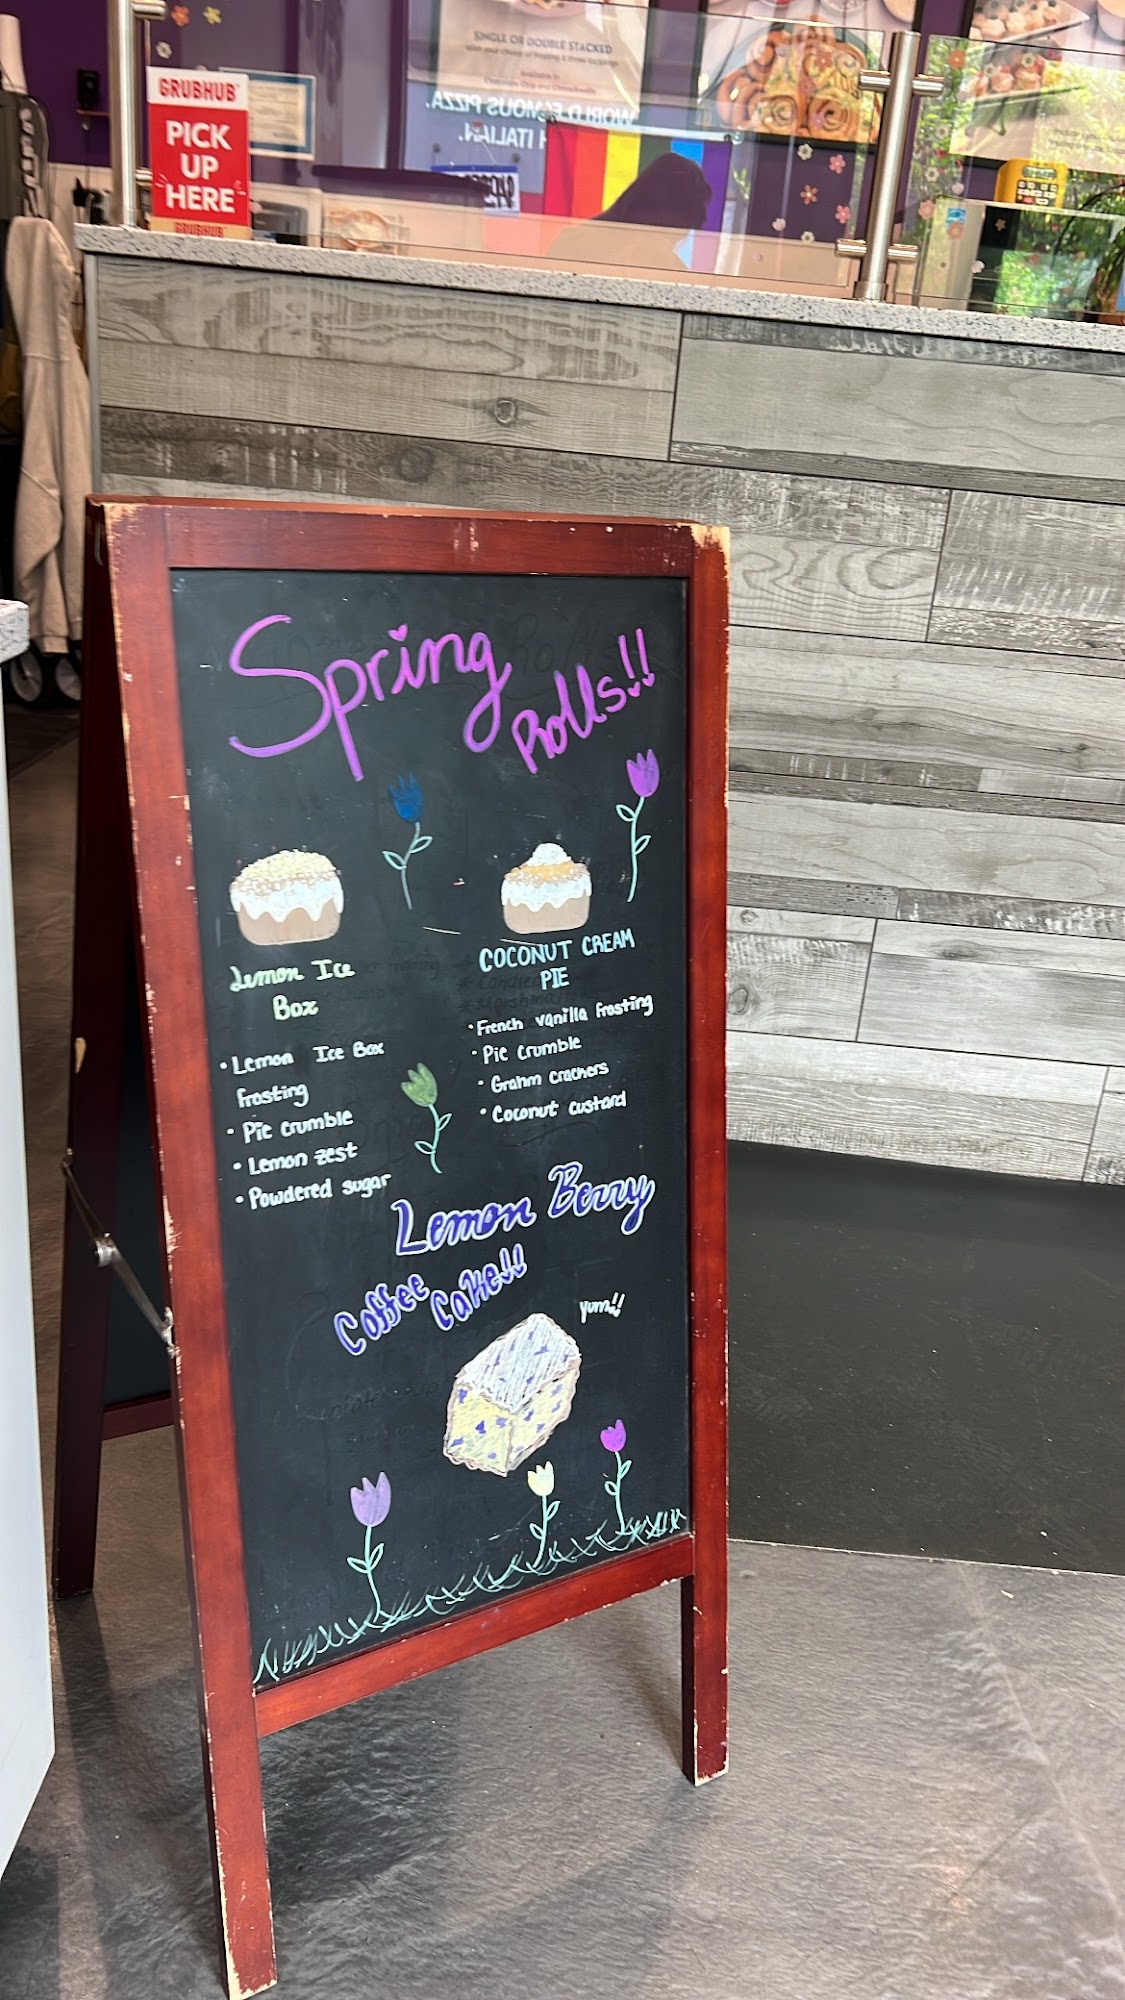 SINGLE OR DOUBLE STACKED
GRUBHUB
PICK
UP
HERE
GRUBHUB
WORLD FAMOUS PIZZA.
ITALIAN.
Spring
Rolls!!
Lemon Ice
Box
• Lemon Ice Box
frosting
• Pie crumble
• Lemon zest
• Powdered sugar
COCONUT CREAM
PIE
• French vanilla frosting
• Pie crumble
• Grahm crackers
• Coconut custard
Lemon Berry
Coffee Cake!!
yum!!